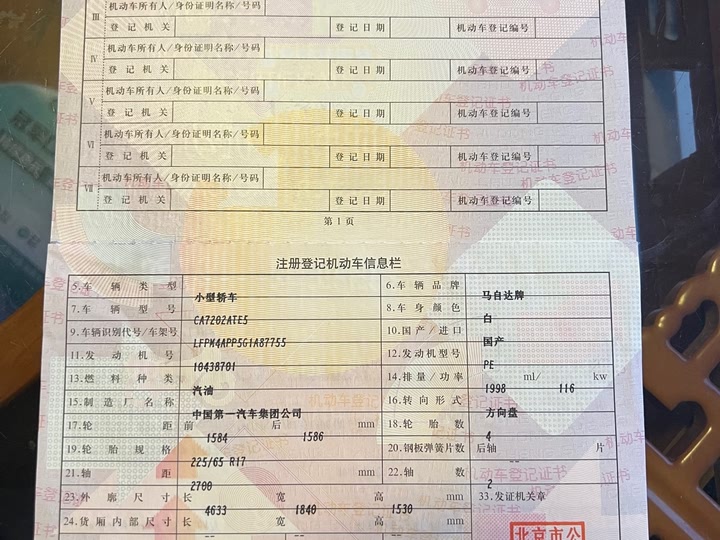 Ⅲ 机动车所有人/身份证明名称/号码
登记机关 登记日期 机动车登记编号
Ⅳ 机动车所有人/身份证明名称/号码
登记机关 登记日期 机动车登记编号
Ⅴ 机动车所有人/身份证明名称/号码
登记机关 登记日期 机动车登记编号
Ⅵ 机动车所有人/身份证明名称/号码
登记机关 登记日期 机动车登记编号
Ⅶ 机动车所有人/身份证明名称/号码
登记机关 登记日期 机动车登记编号
第1页
注册登记机动车信息栏
5.车辆类型 小型轿车 6.车辆品牌 马自达牌
7.车辆型号 CA7202ATE5 8.车身颜色 白
9.车辆识别代号/车架号 LFPM4APP5G1A87755 10.国产/进口 国产
11.发动机号 10438701 12.发动机型号 PE
13.燃料种类 汽油 14.排量/功率 1998 ml/ 116 kw
15.制造厂名称 中国第一汽车集团公司 16.转向形式 方向盘
17.轮距 前 1584 后 1586 mm 18.轮胎数 4
19.轮胎规格 225/65 R17 20.钢板弹簧片数 后轴 -- 片
21.轴距 2700 mm 22.轴数 2
23.外廓尺寸 长 4633 宽 1840 高 1530 mm 33.发证机关章
24.货厢内部尺寸 长 -- 宽 -- 高 -- mm
北京市公